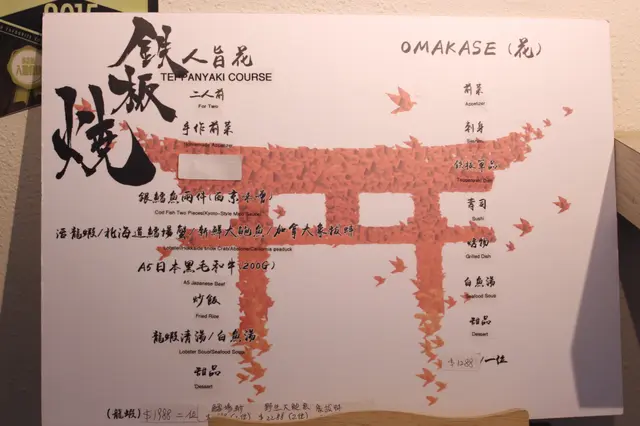 2015
鉄板焼
人旨花
TEPPANYAKI COURSE
二人前
For Two
手作前菜
銀鱈魚兩件(西京味噌)
Cod Fish Two Pieces(Kyoto-Style Miso Sauce)
活龍蝦/北海道鱈場蟹/朝鮮大鮑魚/加拿大象拔蚌
A5日本黑毛和牛(200G)
A5 Japanese Beef
炒飯
Fried Rice
龍蝦清湯/白魚湯
Lobster Soup/Seafood Soup
甜品
Dessert
(龍蝦) $1988 二位
OMAKASE (花)
前菜
Appetizer
刺身
鉄板單品
壽司
Sushi
燒物
Grilled Dish
白魚湯
Seafood Soup
甜品
Dessert
$1288/一位